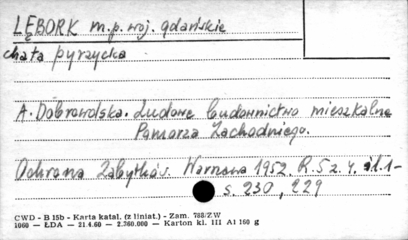 LĘBORK m.p. woj. gdańskie
chata pyrzycka
A. Dobrowolska. Ludowe budownictwo mieszkalne
Pomorza Zachodniego.
Ochrona Zabytków. Warszawa 1952. R. 5 z. 4. il. 1-
s. 230, 229
CWD - B 15b - Karta katal. (z liniat.) - Zam. 788/ZW
1060 — ŁDA — 21.4.60 - 2.760.000 — Karton kl. III A1 160 g